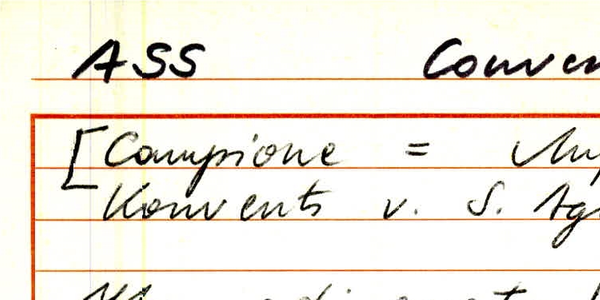 ASS Conven
[Campione =
Konvents v. S. Ag